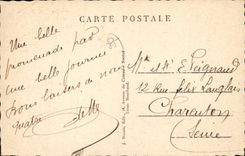 CARTE POSTALE
Une belle
promenade par
une belle journée
Bons baisers de nous
quatre
Mr et Me E. Peignaud
12 rue félix Langlais
Charenton
Seine